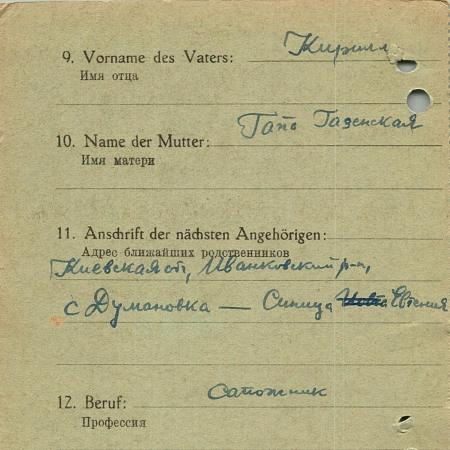 9. Vorname des Vaters: Кирилл
Имя отца
10. Name der Mutter: Гапа Газенская
Имя матери
11. Anschrift der nächsten Angehörigen:
Адрес ближайших родственников
Киевская об, Иванковский р-н,
с Думановка — Синица Евгения
12. Beruf: Сапожник
Профессия